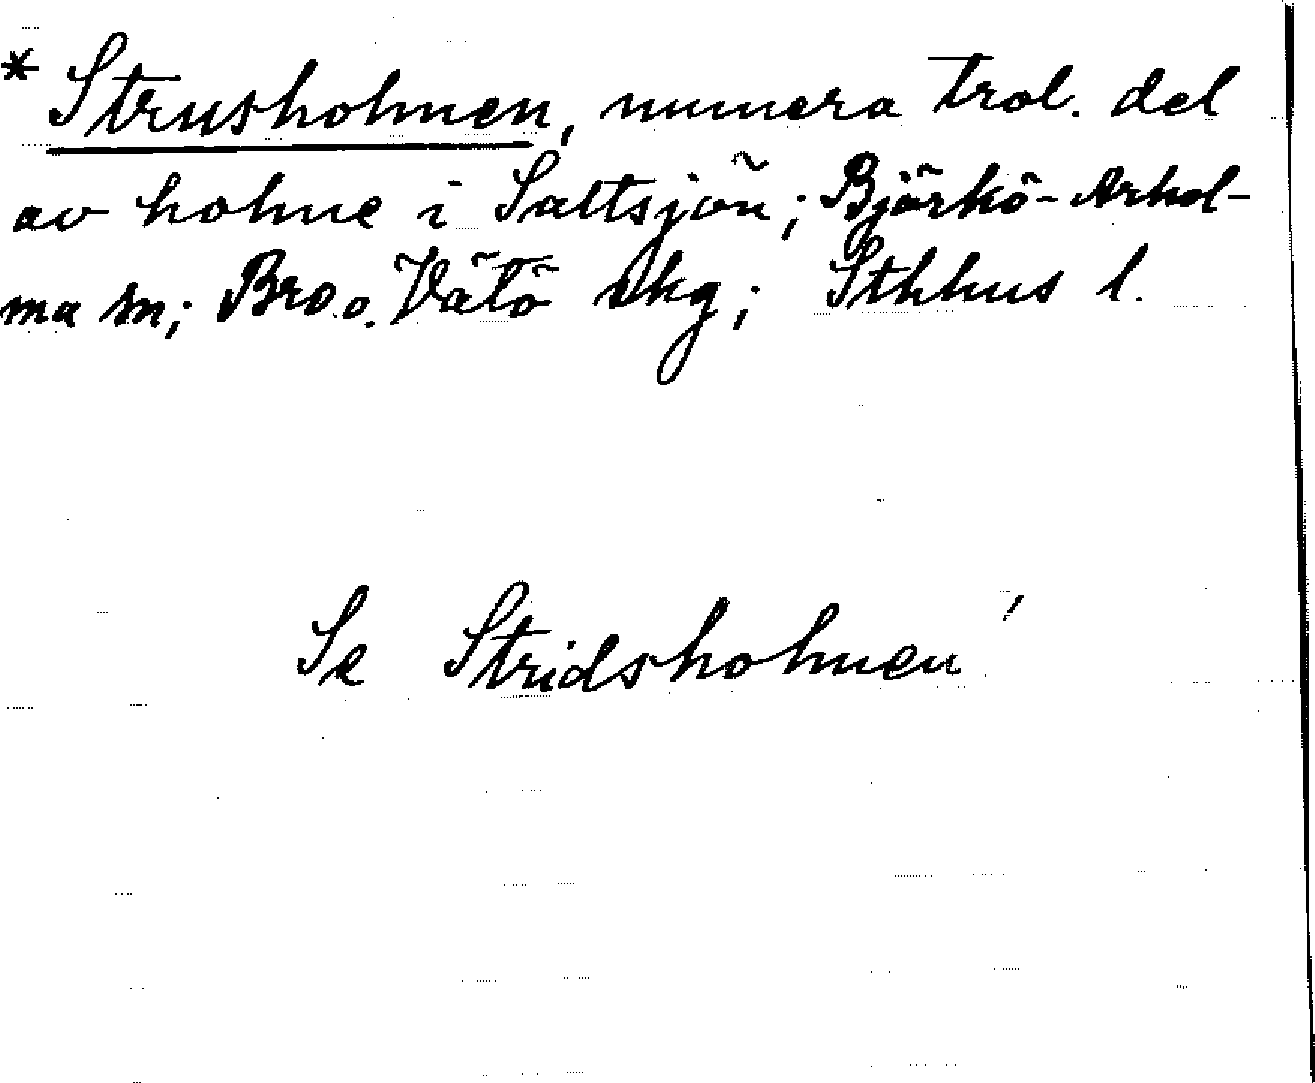 * Strusholmen, numera trol. del
av holme i Saltsjön; Björkö-Arhol-
ma sn; Bro o. Vätö skg; Sthlms l.
Se Stridsholmen